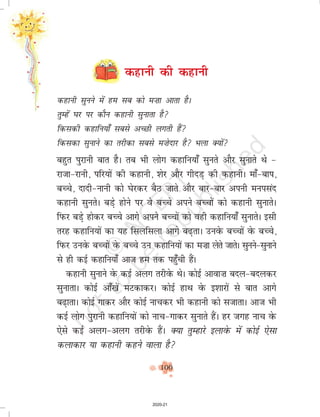 कहानी की कहानी
कहानी सुनने में हम सब को मज़ा आता है।
तुम्हें घर पर कौन कहानी सुनाता है?
किसकी कहानियाँ सबसे अच्छी लगती हैं?
किसका सुनाने का तरीका सबसे मज़ेदार है? भला क्यों?
बहुत पुरानी बात है। तब भी लोग कहानियाँ सुनते और सुनाते थे -
राजा-रानी, परियों की कहानी, शेर और गीदड़ की कहानी। माँ-बाप,
बच्चे, दादी-नानी को घेरकर बैठ जाते और बार-बार अपनी मनपसंद
कहानी सुनते। बड़े होने पर वे बच्चे अपने बच्चों को कहानी सुनाते।
फिर बड़े होकर बच्चे आगे अपने बच्चों को वही कहानियाँ सुनाते। इसी
तरह कहानियों का यह सिलसिला आगे बढ़ता। उनके बच्चों के बच्चे,
फिर उनके बच्चों के बच्चे उन कहानियों का मज़ा लेते जाते। सुनते-सुनाने
से ही कई कहानियाँ आज हम तक पहुँची हैं।
कहानी सुनाने के कई अलग तरीके थे। कोई आवाज़ बदल-बदलकर
सुनाता। कोई आँखें मटकाकर। कोई हाथ के इशारों से बात आगे
बढ़ाता। कोई गाकर और कोई नाचकर भी कहानी को सजाता। आज भी
कई लोग पुरानी कहानियों को नाच-गाकर सुनाते हैं। हर जगह नाच के
ऐसे कई अलग-अलग तरीके हैं। क्या तुम्हारे इलाके में कोई ऐसा
कलाकार या कहानी कहने वाला है?
100
2020-21